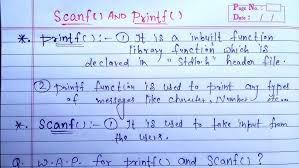 Page No.:
Date: / /
Scanf() AND Printf()
*. Printf():- ① It is a inbuilt function
library function which is
declared in "Stdio.h" header file.
② printf function is used to print any types
of messages like character, Number etc...
*. Scanf():- ① It is used to take input from
the users.
Q. W.A.P. for printf() and Scanf()?